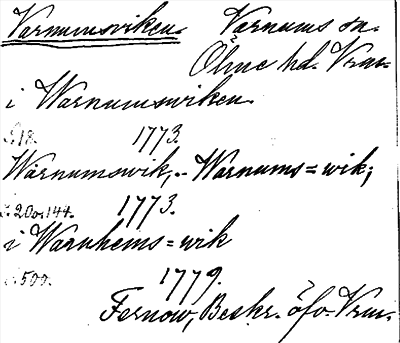 Varnumsviken. Varnums sn.
Ölme hd. Vrml.
i Warnumswiken.
s. 18. 1773.
Warnumswik, - Warnums=wik;
s. 20 o. 144. 1773.
i Warnhems=wik
s. 500. 1779.
Fernow, Beskr. öfv. Vrml.